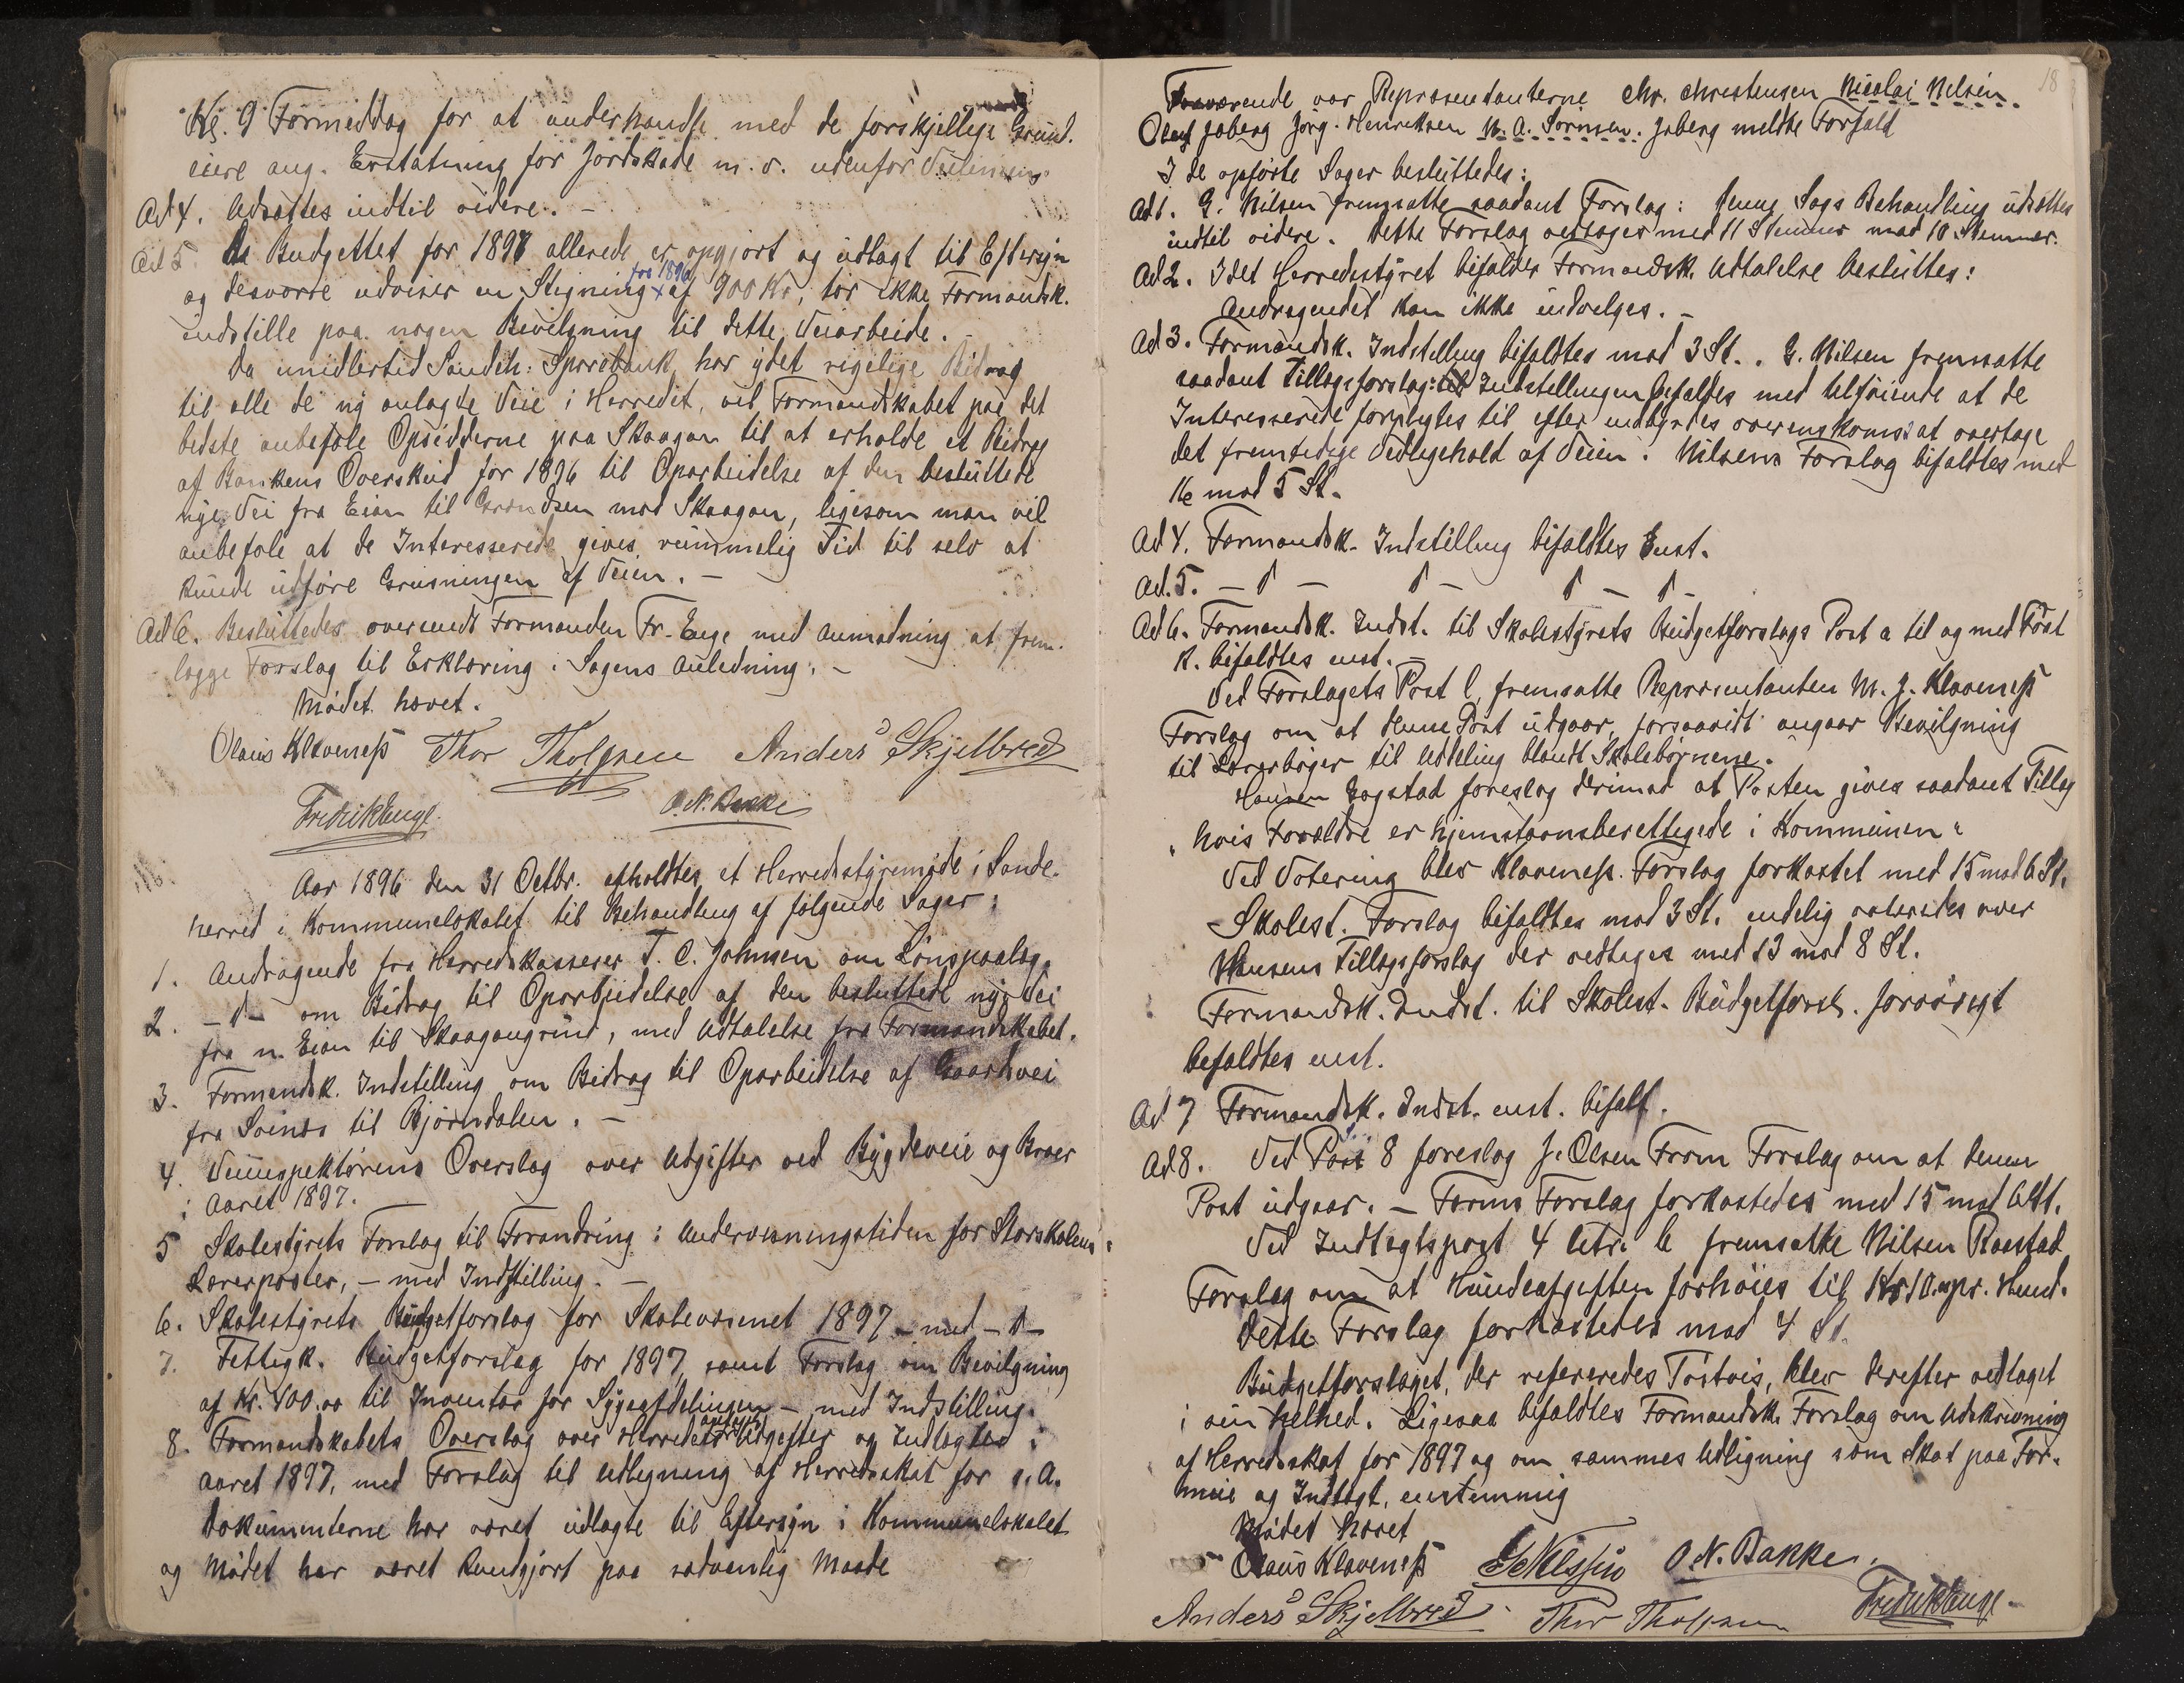 Kl. 9 Formiddag for at underhandle med de forskjellige Grund-
eiere ang. Erstatning for Jordskade m. v. udenfor Veilinien
Ad 4. Udsattes indtil videre. –
Ad 5. Da Budgettet for 1897 allerede er opgjort og udlagt til Eftersyn
og desværre udviser en Stigning fra 1896 af 900 Kr, tør ikke Formandsk.
indstille paa nogen Bevilgning til dette Veiarbeide. –
Da imidlertid Sandeh: Sparebank har ydet rigelige Bidrag
til alle de ny anlagte Veie i Herredet, vil Formandskabet paa det
bedste anbefale Opsidderne paa Skaagan til at erholde et Bidrag
af Bankens Overskud for 1896 til Oparbeidelse af den besluttede
nye Vei fra Eian til Grændsen mod Skaagan, ligesom man vil
anbefale at de Interesserede gives rummelig Tid til selv at
kunde udføre Grusningen af Veien. –
Ad 6. Besluttedes oversendt Formanden Fr. Enge med Anmodning at frem-
lægge Forslag til Erklæring i Sagens Anledning. –
Mødet hævet.
Olaus Klaveness Thor Tholfsen Anders Skjelbred
Fredrik Enge O. N. Bakke
Aar 1896 den 31 Octbr. afholdtes et Herredsstyremøde i Sande-
herred i Kommunelokalet til Behandling af følgende Sager:
1. Andragende fra Herredskasserer T. C. Johnsen om Lønspaalæg.
2. – d – om Bidrag til Oparbeidelse af den besluttede nye Vei
fra n. Eian til Skaagangrind, med Udtalelse fra Formandskabet.
3. Formandsk. Indstilling om Bidrag til Oparbeidelse af Gaardsvei
fra Soines til Bjørndalen. –
4. Veiinspektørens Overslag over Udgifter ved Bygdeveie og Broer
i Aaret 1897.
5 Skolestyrets Forslag til Forandring i Undervisningstiden for Storskolens
Lærerposter, – med Indstilling. –
6. Skolestyrets Budgetforslag for Skolevæsenet 1897 – med – d –
7. Fattigk. Budgetforslag for 1897, samt Forslag om Bevilgning
af Kr. 400.00 til Inventar for Sygeafdelingen – med Indstilling.
8. Formandskabets Overslag over Herredets Udgifter og Indtægter i
Aaret 1897, med Forslag til Udligning af Herredsskat for s. A.
Dokumenterne har været udlagte til Eftersyn i Kommunelokalet
og Mødet har været kundgjort paa sedvanlig Maade
18
Fraværende var Repræsentanterne Chr. Christensen Nicolai Nilsen.
Oluf Joberg Jørg. Henriksen N. A. Sørnsen. Joberg meldte Forfald
I de opførte Sager besluttedes:
Ad 1. G. Nilsen fremsatte saadant Forslag: Denne Sags Behandling udsættes
indtil videre. Dette Forslag vedtages med 11 Stemmer mod 10 Stemmer.
Ad 2. Idet Herredsstyret bifalder Formandsk. Udtalelse besluttes:
Andragendet kan ikke indvilges. –
Ad 3. Formandsk. Indstilling bifaldtes mod 3 St. . G. Nilsen fremsatte
saadant Tillægsforslag: Indstillingen bifaldes med tilføiende at de
Interesserede forpligtes til efter indbyrdes overenskomst at overtage
det fremtidige Vedligehold af Veien. Nilsens Forslag bifaldtes med
16 mod 5 St.
Ad 4. Formandsk. Indstilling bifaldtes Enst.
Ad. 5. – d – d – d – d –
Ad 6. Formandsk. Indst. til Skolestyrets Budgetforslags Post a til og med Post
k. bifaldtes enst. –
Ved Forslagets Post l, fremsatte Repræsentanten M. J. Klaveness
Forslag om at denne Post udgaar, forsaavidt angaar Bevilgning
til Lærebøger til Uddeling blandt Skolebørnene.
Hansen Bogstad foreslog derimod at Posten gives saadant Tillæg
"hvis Forældre er hjemstavnsberettigede i Kommunen"
Ved Votering blev Klaveness. Forslag forkastet med 15 mod 6 St.
Skolest. Forslag bifaldtes mod 3 St. endelig voteredes over
Hansens Tillægsforslag der vedtages med 13 mod 8 St.
Formandsk. Indst. til Skolest. Budgetforsl. forøvrigt
bifaldtes enst.
Ad 7 Formandsk. Indst. enst. bifalt.
Ad 8. Ved Post 8 foreslog J. Olsen From Forslag om at denne
Post udgaar. – Froms Forslag forkastedes med 15 mod 6 St.
Ved Indtægtspost 4 litr. b fremsatte Nilsen Raastad
Forslag om at Hundeafgiften forhøies til Kr 10. pr. Hund.
Dette Forslag forkastedes mod 4 St.
Budgetforslaget, der refereredes Postvis, blev derefter vedtaget
i sin helhed. Ligesaa bifaldtes Formandsk. Forslag om Udskrivning
af Herredsskat for 1897 og om sammes Udligning som Skat paa For-
mue og Indtægt, enstemmig
Mødet hævet
Olaus Klaveness G Nilssen O. N. Bakke.
Anders Skjelbred Thor Tholfsen Fredrik Enge